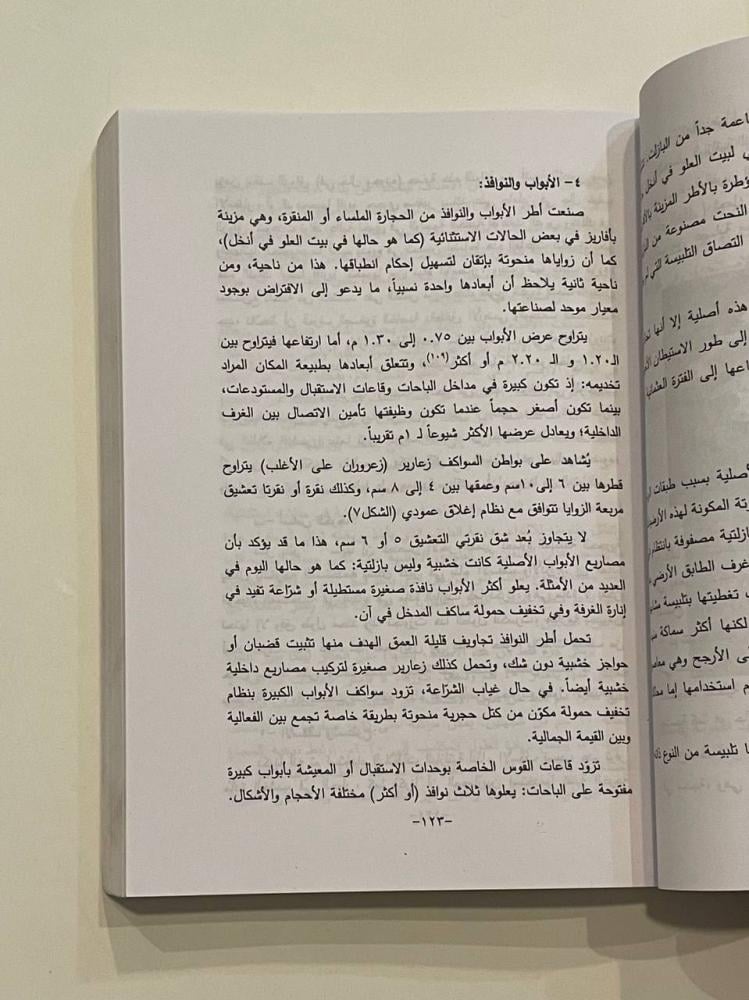 ٤- الأبواب والنوافذ:
صنعت أطر الأبواب والنوافذ من الحجارة الملساء أو المنقرة، وهي مزينة
بأفاريز في بعض الحالات الاستثنائية (كما هو حالها في بيت العلو في أنخل)،
كما أن زواياها منحوتة بإتقان لتسهيل إحكام انطباقها. هذا من ناحية، ومن
ناحية ثانية يلاحظ أن أبعادها واحدة نسبياً، ما يدعو إلى الافتراض بوجود
معيار موحد لصناعتها.
يتراوح عرض الأبواب بين ٠.٧٥ إلى ١.٣٠ م، أما ارتفاعها فيتراوح بين
الـ١.٢٠ و الـ ٢.٢٠ م أو أكثر(١٠٩)، وتتعلق أبعادها بطبيعة المكان المراد
تخديمه: إذ تكون كبيرة في مداخل الباحات وقاعات الاستقبال والمستودعات،
بينما تكون أصغر حجماً عندما تكون وظيفتها تأمين الاتصال بين الغرف
الداخلية؛ ويعادل عرضها الأكثر شيوعاً لـ ١م تقريباً.
يُشاهد على بواطن السواكف زعارير (زعروران على الأغلب) يتراوح
قطرها بين ٦ إلى١٠سم وعمقها بين ٤ إلى ٨ سم، وكذلك نقرة أو نقرتا تعشيق
مربعة الزوايا تتوافق مع نظام إغلاق عمودي (الشكل٧).
لا يتجاوز بُعد شق نقرتي التعشيق ٥ أو ٦ سم، هذا ما قد يؤكد بأن
مصاريع الأبواب الأصلية كانت خشبية وليس بازلتية: كما هو حالها اليوم في
العديد من الأمثلة. يعلو أكثر الأبواب نافذة صغيرة مستطيلة أو شرّاعة تفيد في
إنارة الغرفة وفي تخفيف حمولة ساكف المدخل في آن.
تحمل أطر النوافذ تجاويف قليلة العمق الهدف منها تثبيت قضبان أو
حواجز خشبية دون شك، وتحمل كذلك زعارير صغيرة لتركيب مصاريع داخلية
خشبية أيضاً. في حال غياب الشرّاعة، تزود سواكف الأبواب الكبيرة بنظام
تخفيف حمولة مكوّن من كتل حجرية منحوتة بطريقة خاصة تجمع بين الفعالية
وبين القيمة الجمالية.
تزوّد قاعات القوس الخاصة بوحدات الاستقبال أو المعيشة بأبواب كبيرة
مفتوحة على الباحات: يعلوها ثلاث نوافذ (أو أكثر) مختلفة الأحجام والأشكال.
-١٢٣-
جداً من البازلت
لبيت العلو في أنخل
بالأطر المزينة
النحت مصنوعة من
التصاق التلبيسة التي
هذه أصلية إلا أنها
إلى طور الاستيطان
إلى الفترة
بسبب طبقات
المكونة لهذه
مصفوفة
غرف الطابق الأرضي
تغطيتها بتلبيسة
لكنها أكثر سماكة
الأرجح وهي
استخدامها إما
تلبيسة من النوع